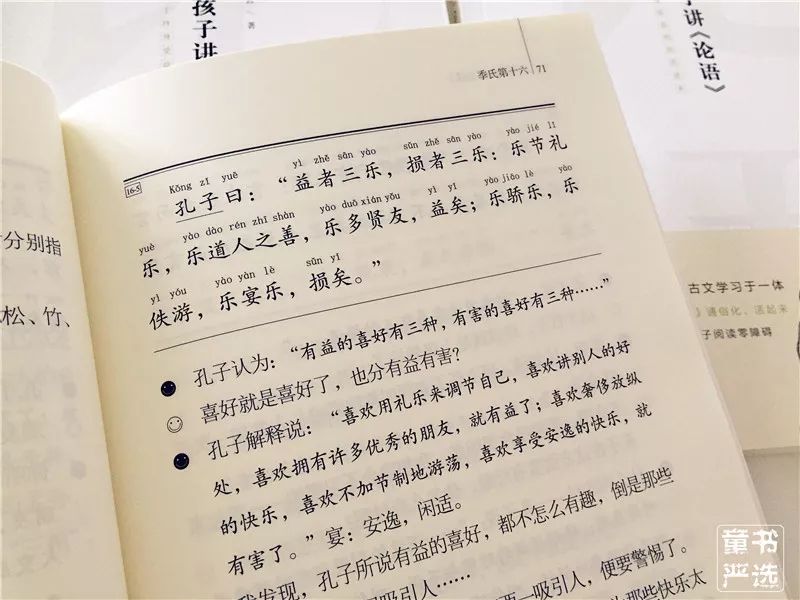 孩子讲
著
子讲《论语》
季氏第十六 71
yì zhě sān yào sǔn zhě sān yào yào jié lǐ
16-5 Kǒng zǐ yuē
孔子曰：“益者三乐，损者三乐：乐节礼
yuè yào dào rén zhī shàn yào duō xián yǒu yì yǐ yào jiāo lè yào
乐，乐道人之善，乐多贤友，益矣；乐骄乐，乐
yì yóu yào yàn lè sǔn yǐ
佚游，乐宴乐，损矣。”
孔子认为：“有益的喜好有三种，有害的喜好有三种……”
喜好就是喜好了，也分有益有害？
孔子解释说：“喜欢用礼乐来调节自己，喜欢讲别人的好
处，喜欢拥有许多优秀的朋友，就有益了；喜欢奢侈放纵
的快乐，喜欢不加节制地游荡，喜欢享受安逸的快乐，就
有害了。”宴：安逸，闲适。
我发现，孔子所说有益的喜好，都不怎么有趣，倒是那些
吸引人……
一吸引人，便要警惕了。
那些快乐太
分别指
松、竹、
古文学习于一体
通俗化、活起来
子阅读零障碍
童书
严选